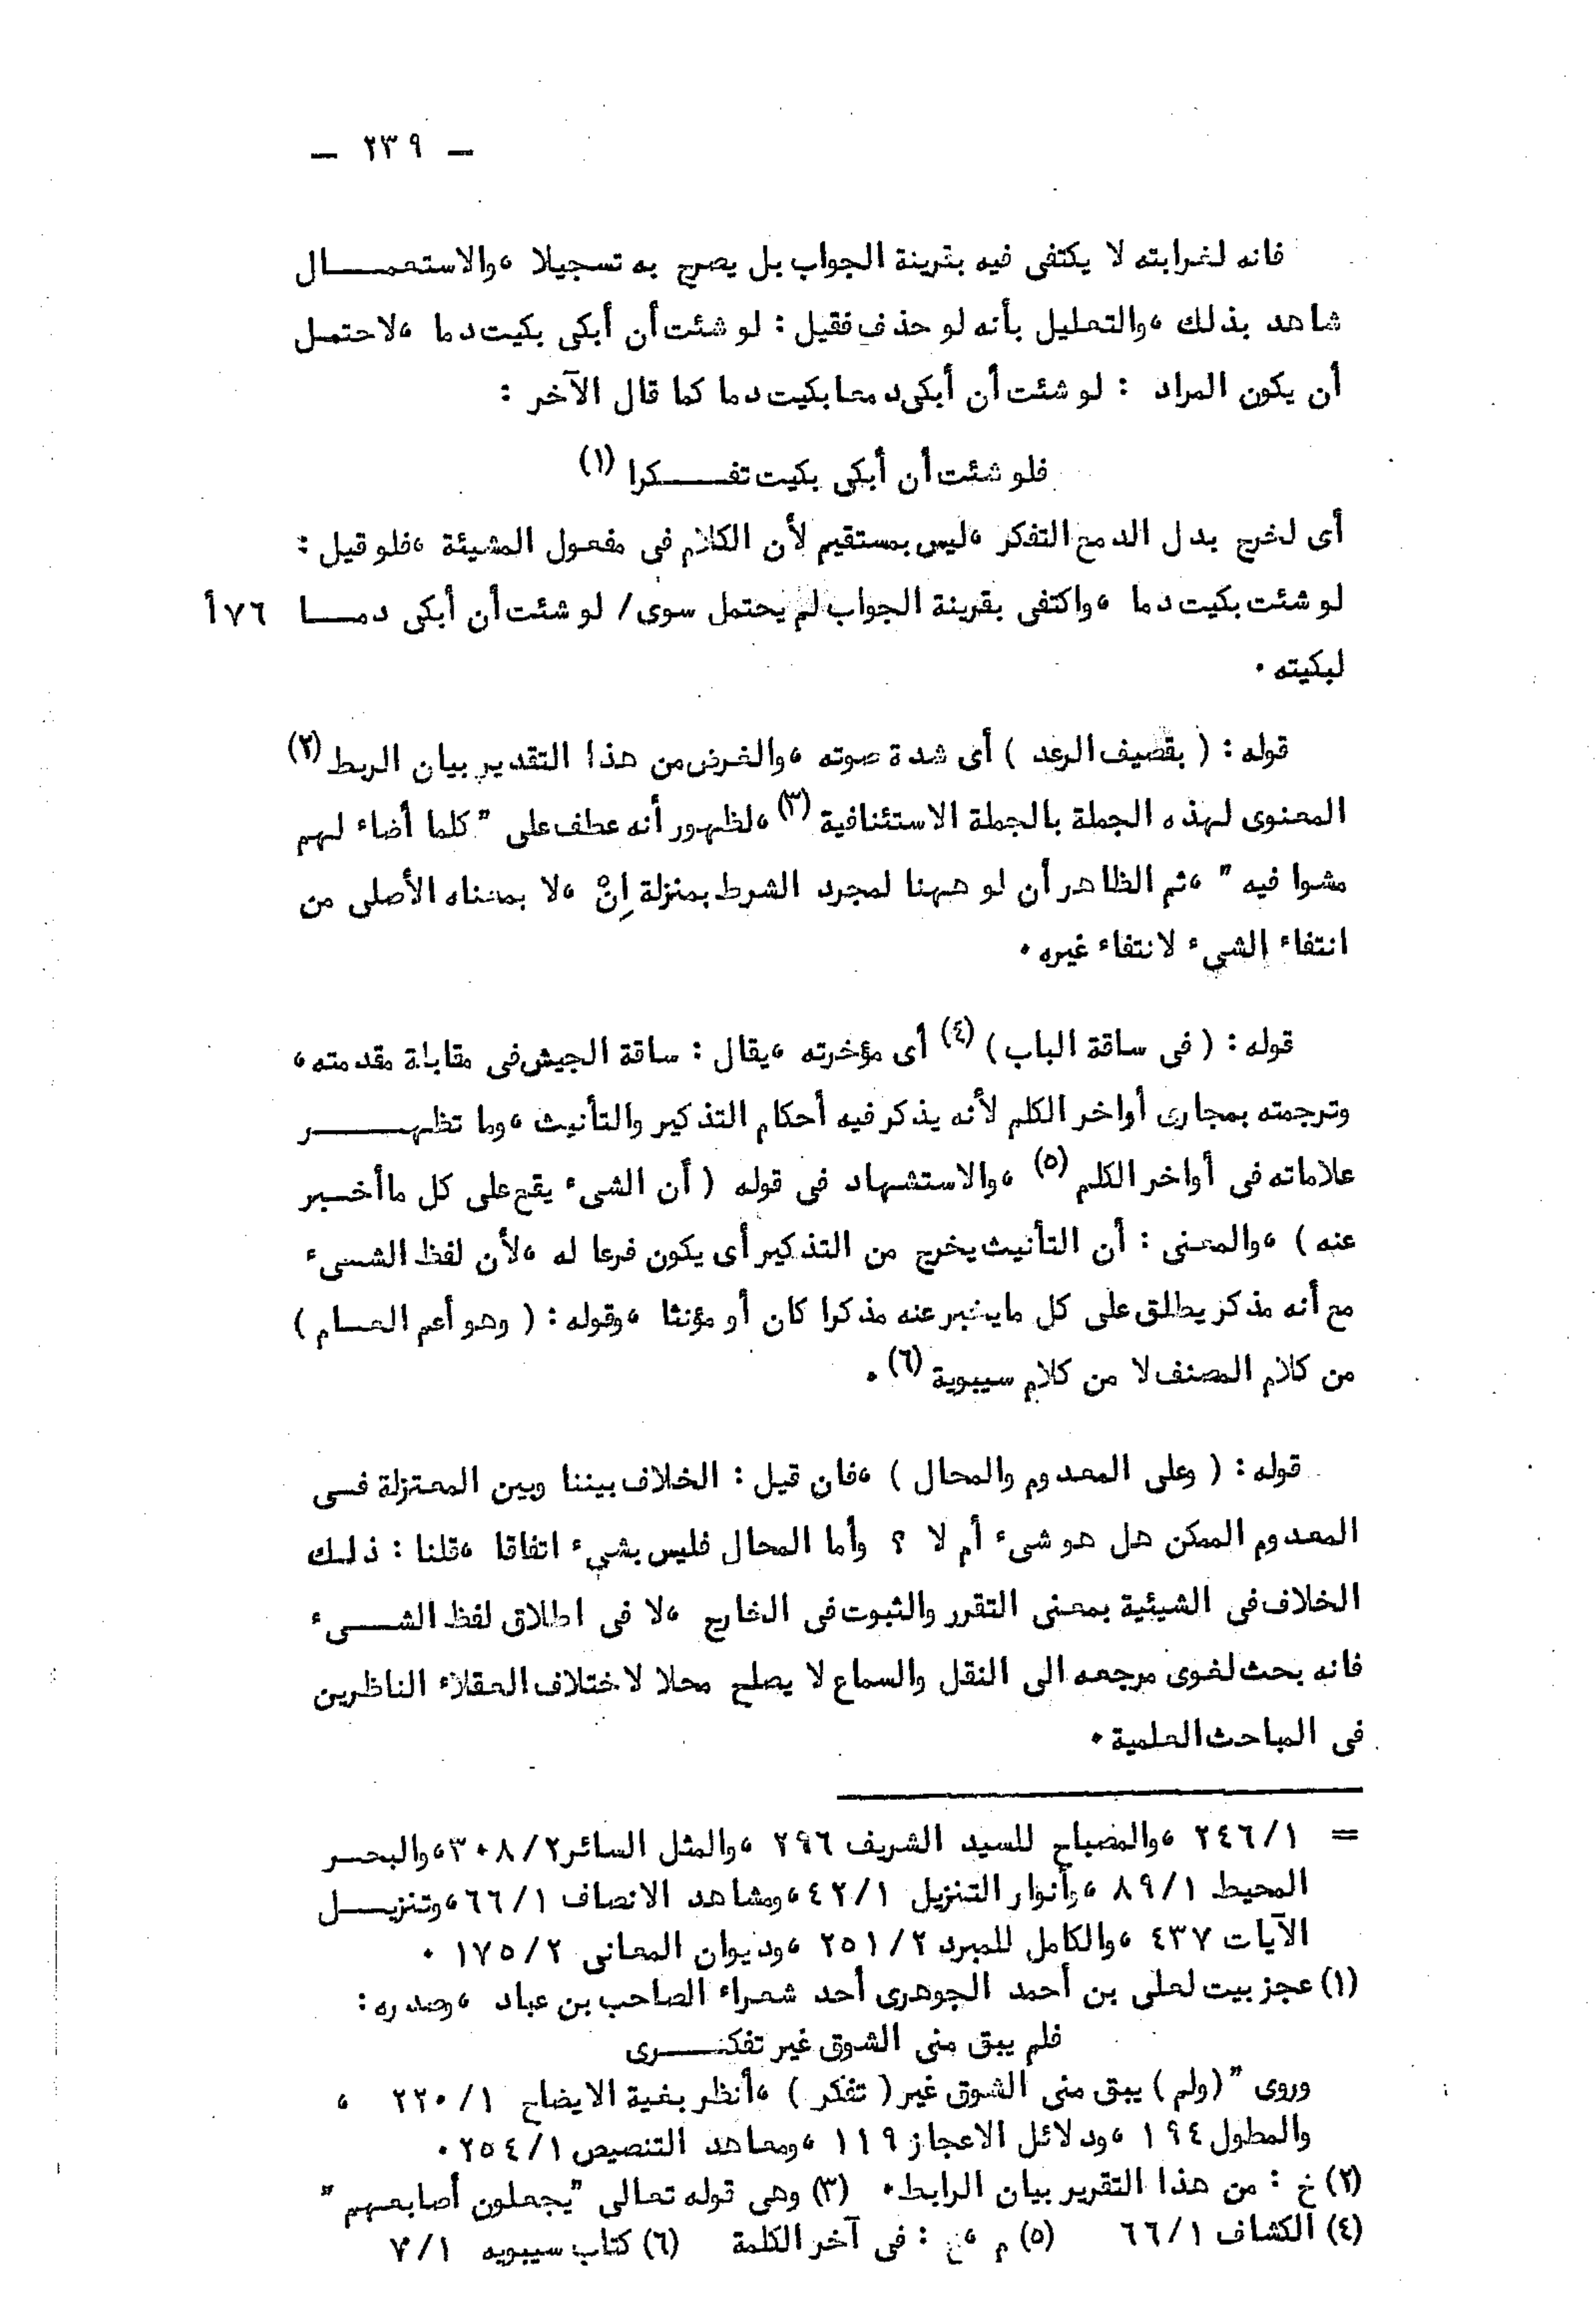 – ٢٣٩ –
فانه لغرابته لا يكتفى فيه بقرينة الجواب بل يصرح به تسجيلا ، والاستعمال
شاهد بذلك ، والتعليل بأنه لو حذف فقيل : لو شئت أن أبكى بكيت دما ، لاحتمل
أن يكون المراد : لو شئت أن أبكى دمعا بكيت دما كما قال الآخر :
فلو شئت أن أبكى بكيت تفكرا (١)
أى لخرج بدل الدمع التفكر ، ليس بمستقيم لأن الكلام فى مفعول المشيئة ، فلو قيل :
لو شئت بكيت دما ، واكتفى بقرينة الجواب لم يحتمل سوى / لو شئت أن أبكى دما ٧٦أ
لبكيته .
قوله : ( بقصيف الرعد ) أى شدة صوته ، والغرض من هذا التقدير بيان الربط (٢)
المعنوى لهذه الجملة بالجملة الاستئنافية (٣) ، لظهور أنه عطف على " كلما أضاء لهم
مشوا فيه " ، ثم الظاهر أن لو ههنا لمجرد الشرط بمنزلة إنْ ، لا بمعناه الأصلى من
انتفاء الشىء لانتفاء غيره .
قوله : ( فى ساقة الباب ) (٤) أى مؤخرته ، يقال : ساقة الجيش فى مقابلة مقدمته ،
وترجمته بمجارى أواخر الكلم لأنه يذكر فيه أحكام التذكير والتأنيث ، وما تظهر
علاماته فى أواخر الكلم (٥) ، والاستشهاد فى قوله ( أن الشىء يقع على كل ماأخبر
عنه ) ، والمعنى : أن التأنيث يخرج من التذكير أى يكون فرعا له ، لأن لفظ الشىء
مع أنه مذكر يطلق على كل مايخبر عنه مذكرا كان أو مؤنثا ، وقوله : ( وهو أعم العام )
من كلام المصنف لا من كلام سيبوية (٦) .
قوله : ( وعلى المعدوم والمحال ) ، فان قيل : الخلاف بيننا وبين المعتزلة فى
المعدوم الممكن هل هو شىء أم لا ؟ وأما المحال فليس بشىء اتفاقا ، قلنا : ذلك
الخلاف فى الشيئية بمعنى التقرر والثبوت فى الخارج ، لا فى اطلاق لفظ الشىء
فانه بحث لغوى مرجعه الى النقل والسماع لا يصلح محلا لاختلاف العقلاء الناظرين
فى المباحث العلمية .
= ٢٤٦/١ ، والمصباح للسيد الشريف ٢٩٦ ، والمثل السائر ٣٠٨/٢ ، والبحر
المحيط ٨٩/١ ، وأنوار التنزيل ٤٢/١ ، ومشاهد الانصاف ٦٦/١ ، وتنزيل
الآيات ٤٣٧ ، والكامل للمبرد ٢٥١/٢ ، وديوان المعانى ١٧٥/٢ .
(١) عجز بيت لعلى بن أحمد الجوهرى أحد شعراء الصاحب بن عباد ، وصدره :
فلم يبق منى الشوق غير تفكرى
وروى " (ولم) يبق منى الشوق غير ( تفكر ) ، أنظر بغية الايضاح ٢٢٠/١ ،
والمطول ١٩٤ ، ودلائل الاعجاز ١١٩ ، ومعاهد التنصيص ٢٥٤/١ .
(٢) خ : من هذا التقرير بيان الرابط . (٣) وهى قوله تعالى "يجعلون أصابعهم "
(٤) الكشاف ٦٦/١ (٥) م ، خ : فى آخر الكلمة (٦) كتاب سيبويه ٧/١